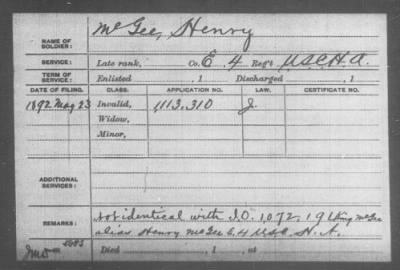 NAME OF SOLDIER: McGee, Henry
SERVICE: Late rank, Co. E, 4 Reg't U.S.C.H.A.
TERM OF SERVICE: Enlisted , 1 Discharged , 1
DATE OF FILING. CLASS. APPLICATION NO. LAW. CERTIFICATE NO.
1892 May 23 Invalid, 1113,310 J.
Widow,
Minor,
ADDITIONAL SERVICES:
REMARKS: Not identical with I.O. 1,072,191 McGee
alias Henry McGee E. 4 U.S.C.H.A.
Died , 1 , at